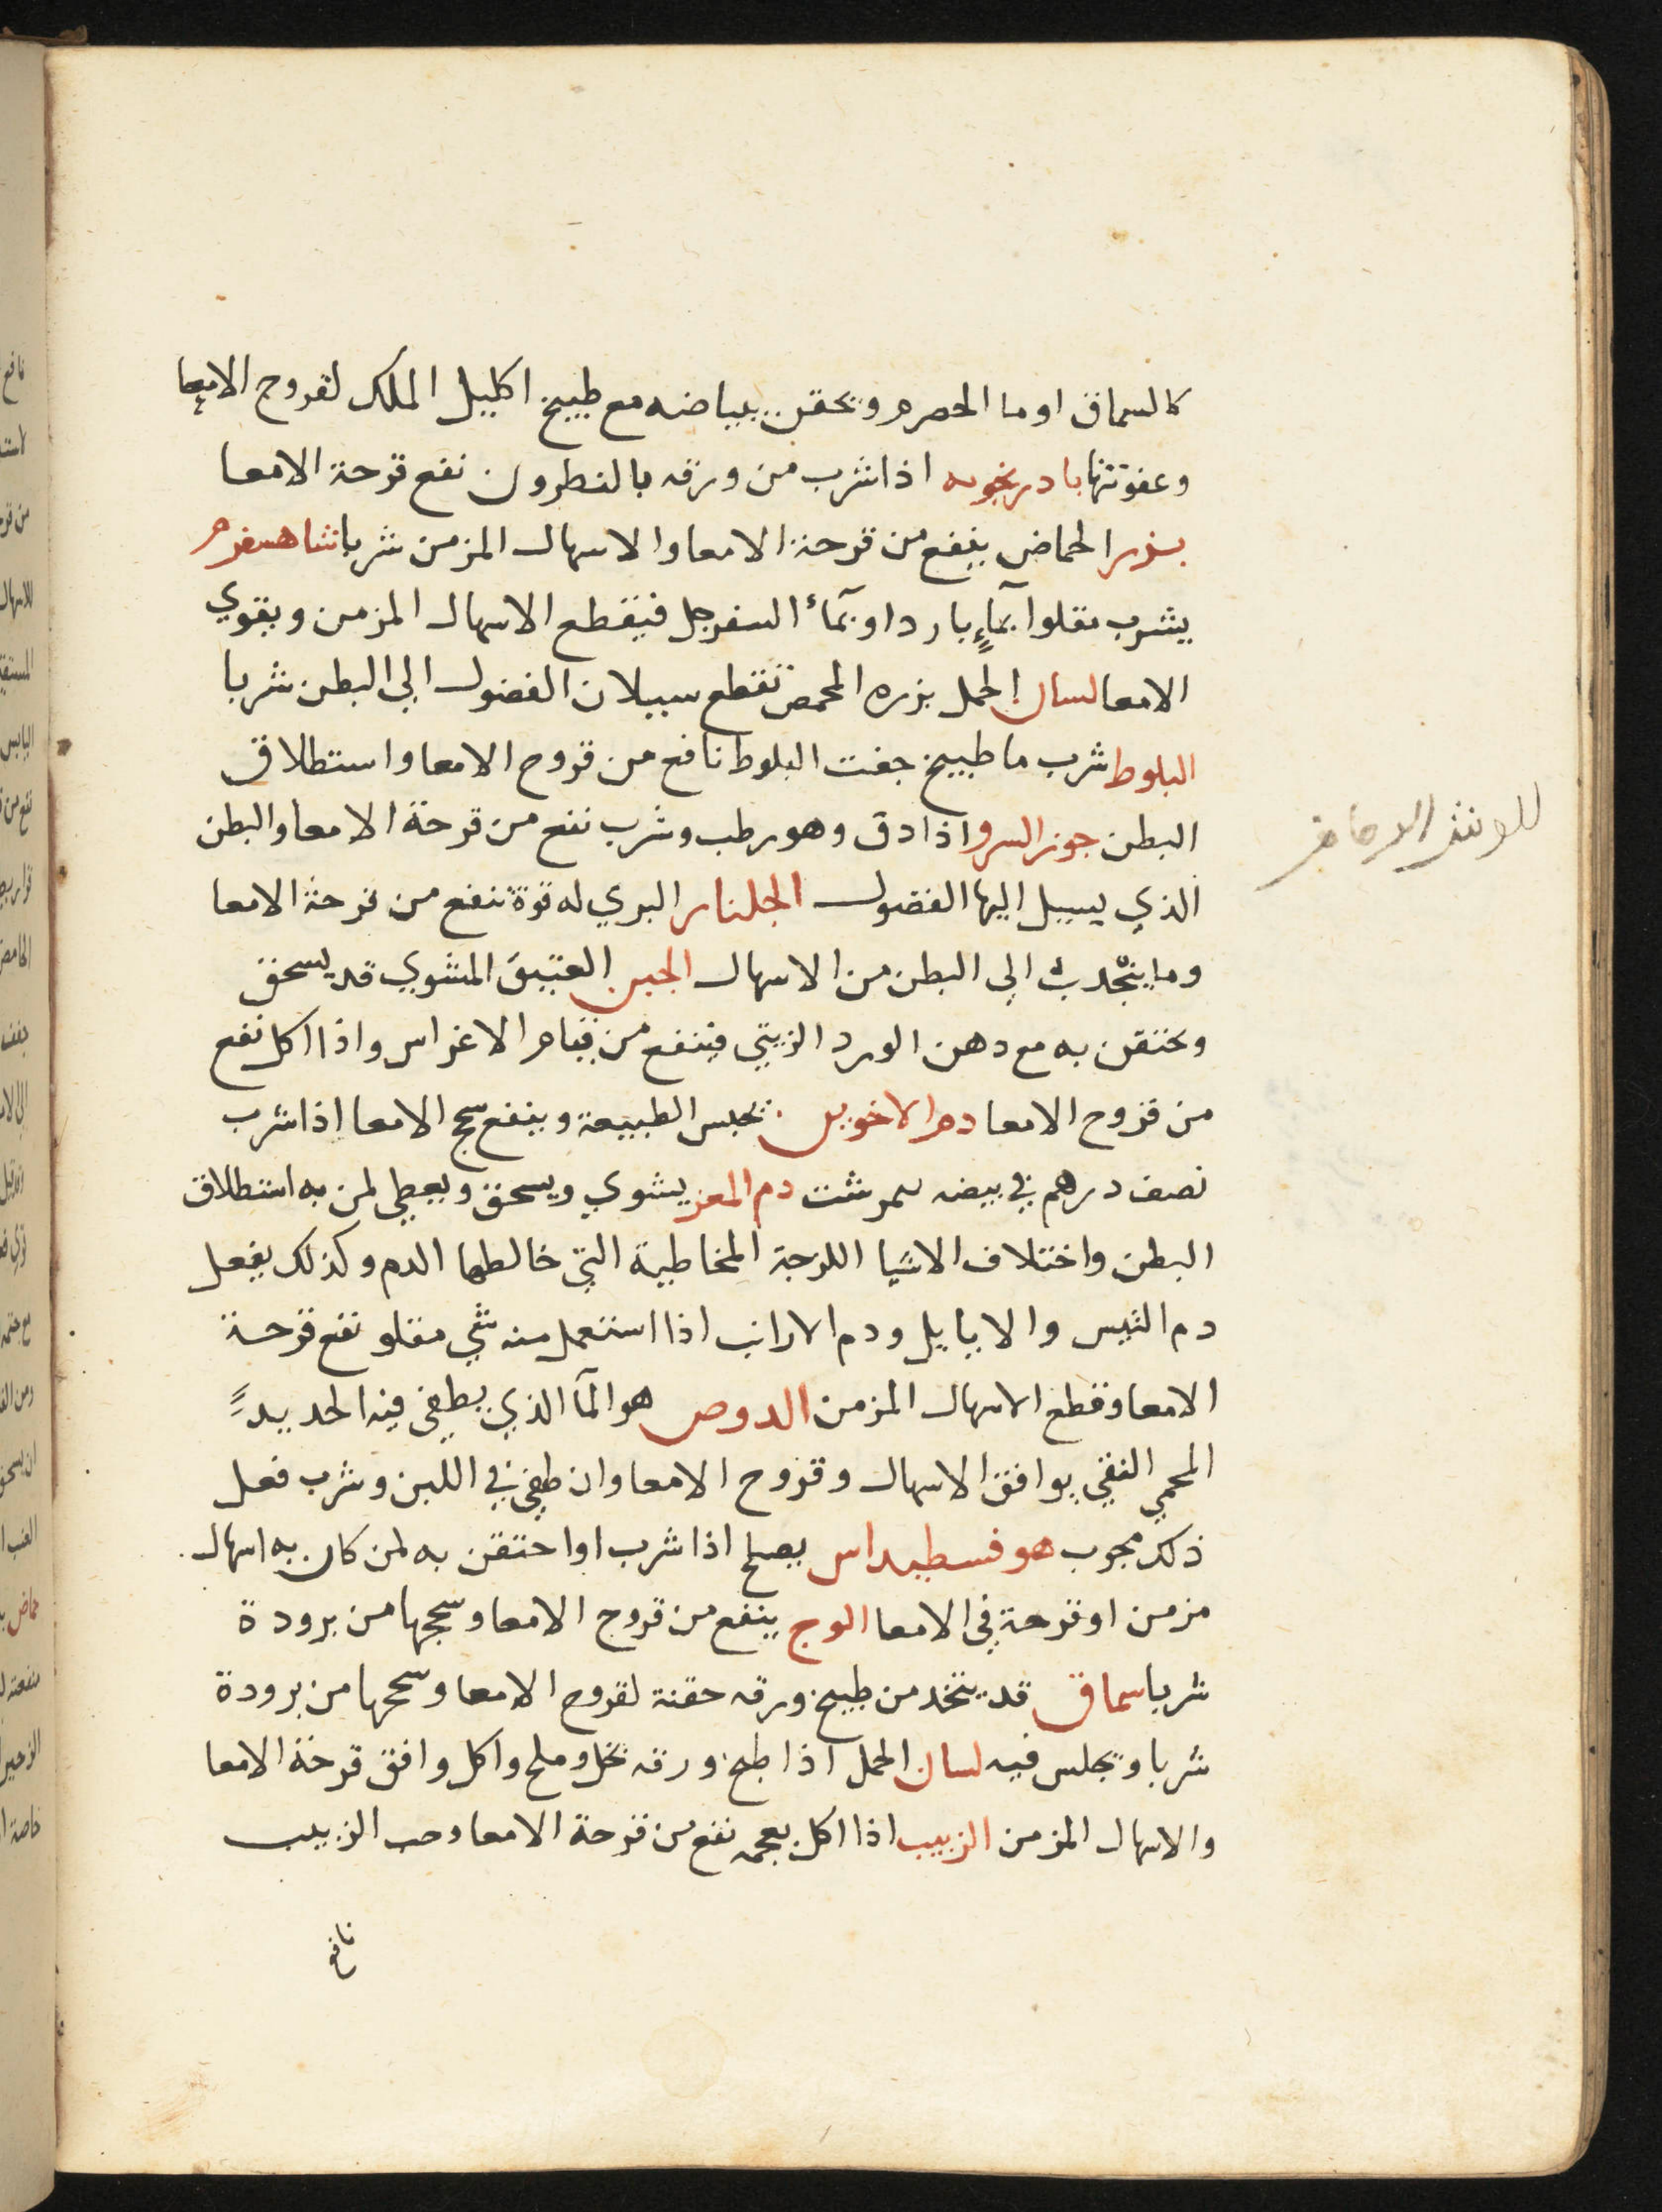 كالسماق او ما الحصرم ويحقن ببياضه مع طبيخ اكليل الملك لقروح الامعا
وعفونتها بادرنجويه اذا شرب من ورقه بالنطرون نفع قرحة الامعا
بزر الحماض ينفع من قرحة الامعا والاسهال المزمن شربا شاهسفرم
يشرب مقلوا بمآءٍ بارد او بمآء السفرجل فيقطع الاسهال المزمن ويقوي
الامعا لسان الحمل بزره المحمص تقطع سيلان الفضول الى البطن شربا
البلوط شرب ما طبيخ جفت البلوط نافع من قروح الامعا واستطلاق
البطن جوز السرو اذا دق وهو رطب وشرب نفع من قرحة الامعا والبطن
الذي يسيل اليها الفضول الجلنار البري له قوة تنفع من قرحة الامعا
وما يتجدث الى البطن من الاسهال الجبن العتيق المشوي قد يسحق
ويحتقن به مع دهن الورد الزيتي فينفع من قيام الاغراس واذا اكل نفع
من قروح الامعا دم الاخوين يحبس الطبيعة وينفع سحج الامعا اذا شرب
نصف درهم في بيضه نمرشت دم المعز يشوي ويسحق ويعطي لمن به استطلاق
البطن واختلاف الاشيا اللزجة المخاطية التي خالطها الدم وكذلك يفعل
دم التيس والايايل ودم الارانب اذا استعمل منه شي مقلو نفع قرحة
الامعا وقطع الاسهال المزمن الدوص هو المآ الذي يطفي فيه الحديد
المحمي النقي يوافق الاسهال وقروح الامعا وان طفي في اللبن وشرب فعل
ذلك مجرب هوفسطيداس يصلح اذا شرب او احتقن به لمن كان به اسهال
مزمن او قرحة في الامعا الوج ينفع من قروح الامعا وسحجها من برودة
شربا سماق قد يتخد من طبيخ ورقه حقنة لقروح الامعا وسحجها من برودة
شربا ويجلس فيه لسان الحمل اذا طبخ ورقه بخل وملح واكل وافق قرحة الامعا
والاسهال المزمن الزبيب اذا اكل بعجمه نفع من قرحة الامعا وحب الزبيب
نافع